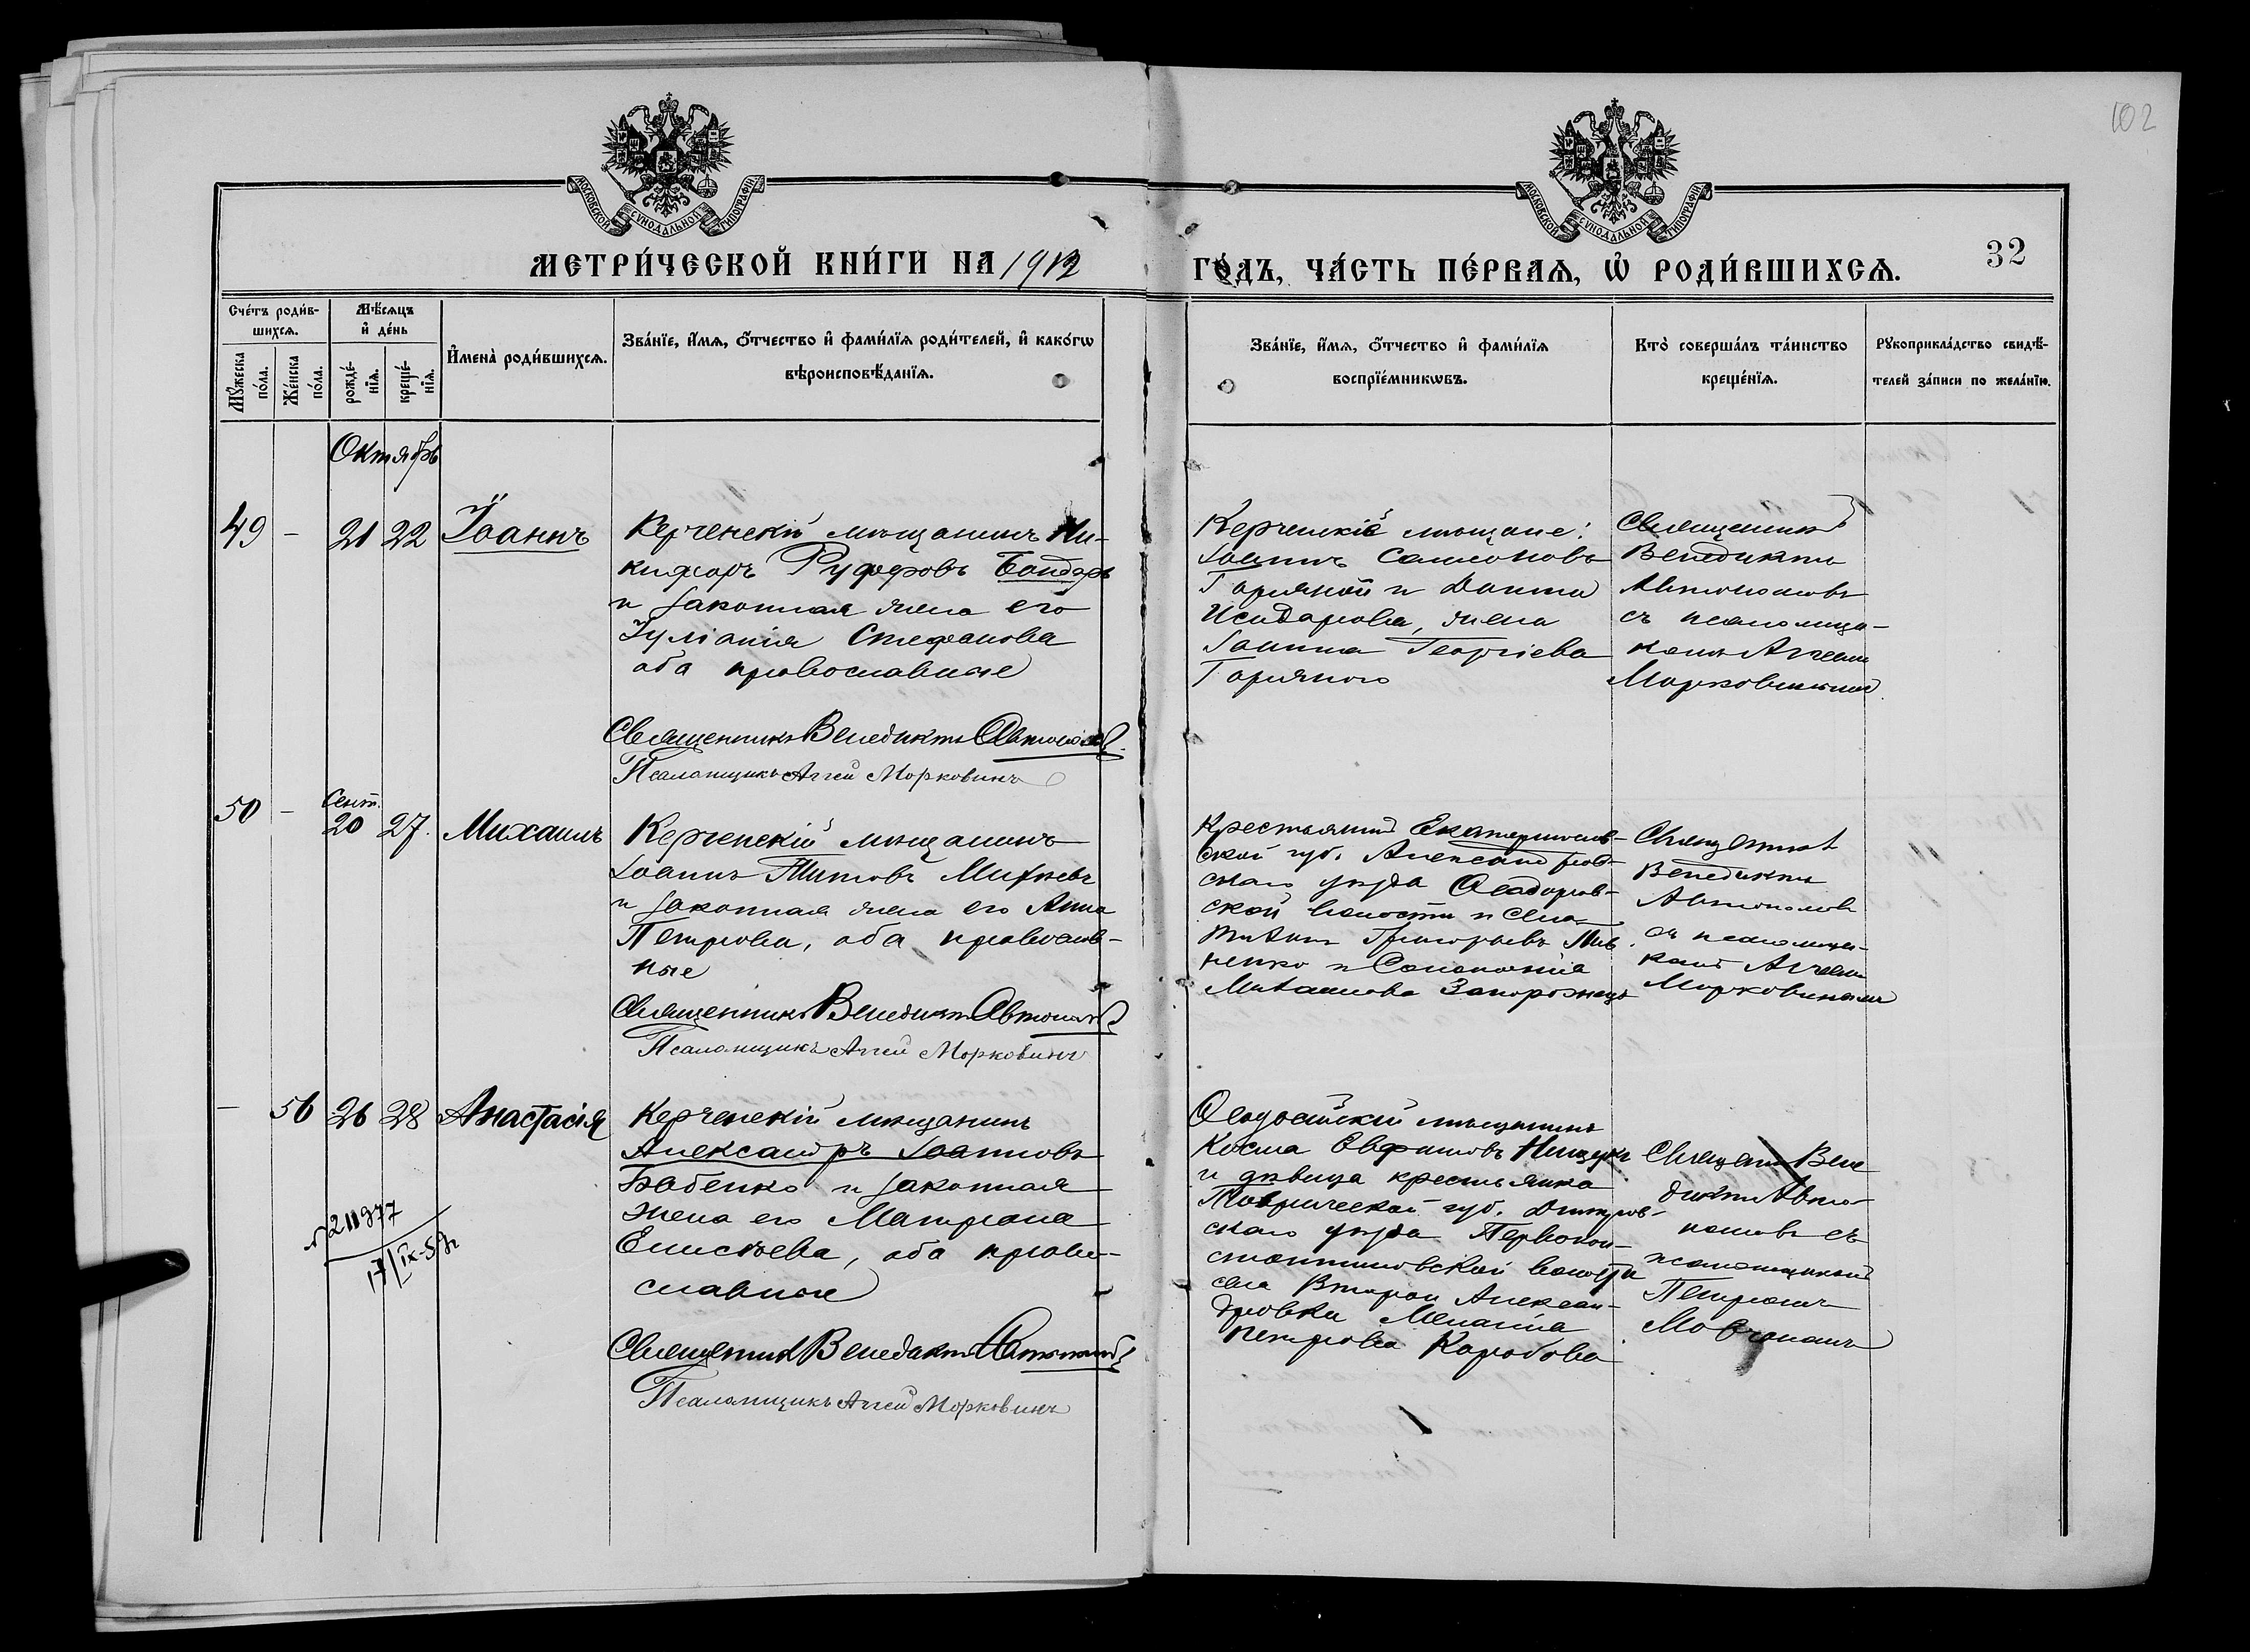 102
МОСКОВСКОЙ СѴНОДАЛЬНОЙ ТИПОГРАФІИ
МОСКОВСКОЙ СѴНОДАЛЬНОЙ ТИПОГРАФІИ
МЕТРИ́ЧЕСКОЙ КНИ́ГИ НА 1912
ГО́ДЪ, ЧА́СТЬ ПЕ́РВАѦ, Ѡ҆ РОДИ́ВШИХСѦ.
32
Сче́тъ роди́в-
шихсѧ.
Мꙋ́жеска по́ла.
Же́нска по́ла.
Мѣ́сѧцъ
и҆ де́нь
рожде́-
нїѧ.
креще́-
нїѧ.
И҆мена̀ роди́вшихсѧ.
Зва́нїе, и҆́мѧ, ѻ҆́тчество и҆ фами́лїѧ роди́телей, и҆ како́гѡ
вѣроисповѣ́данїѧ.
Зва́нїе, и҆́мѧ, ѻ҆́тчество и҆ фами́лїѧ
воспрїе́мникѡвъ.
Кто̀ соверша́лъ та́инство
креще́нїѧ.
Рꙋкоприкла́дство свидѣ́-
телей за́писи по жела́нїю.
Октябрь
49 - 21 22 Іоаннъ
Керченскій мѣщанинъ Ни-
кифоръ Руфовъ Бондарь
и законная жена его
Іуліанія Стефанова
оба православные
Священникъ Венедиктъ Автономовъ
Псаломщикъ Аггей Морковинъ
Керченскіе мѣщане:
Іоаннъ Самсоновъ
и Домна
Исидорова, жена
Іоанна Георгіева
Священникъ
Венедиктъ
Автономовъ
съ псаломщи-
комъ Аггеем
Морковинымъ
50 - Сент. 20 27. Михаилъ
Керченскій мѣщанинъ
Іоаннъ Титовъ Михневъ
и законная жена его Анна
Петрова, оба православ-
ные
Священникъ Венедиктъ Автономовъ
Псаломщикъ Аггей Морковинъ
Крестьяний Екатеринослав-
ской губ. Александров-
скаго уѣзда Ѳеодоров-
ской волости и села
Григорьевъ Пив
ненко и Соломонія
Михаилова Запорожецъ
Священникъ
Венедиктъ
Автономовъ
съ псаломщи-
комъ Аггеем
Морковинымъ
- 56 26 28 Анастасія
Керченскій мѣщанинъ
Александръ Іоанновъ
Бабенко и законная
жена его Матрона
Елисѣева, оба право-
славные
Священникъ Венедиктъ Автономовъ
Псаломщикъ Аггей Морковинъ
№ 211977
17/IX-57г
Ѳеодосійскій мѣщанинъ
Косма Евфимовъ Нищукъ
и дѣвица крестьянка
Таврической губ. Днѣпров-
скаго уѣзда Первокон-
стантиновской волости
села Второй Алексан-
дровки Меланія
Петрова Коробова
Священ. Вене
диктъ Авто-
номовъ съ
псаломщикомъ
Петромъ
Мовчаномъ